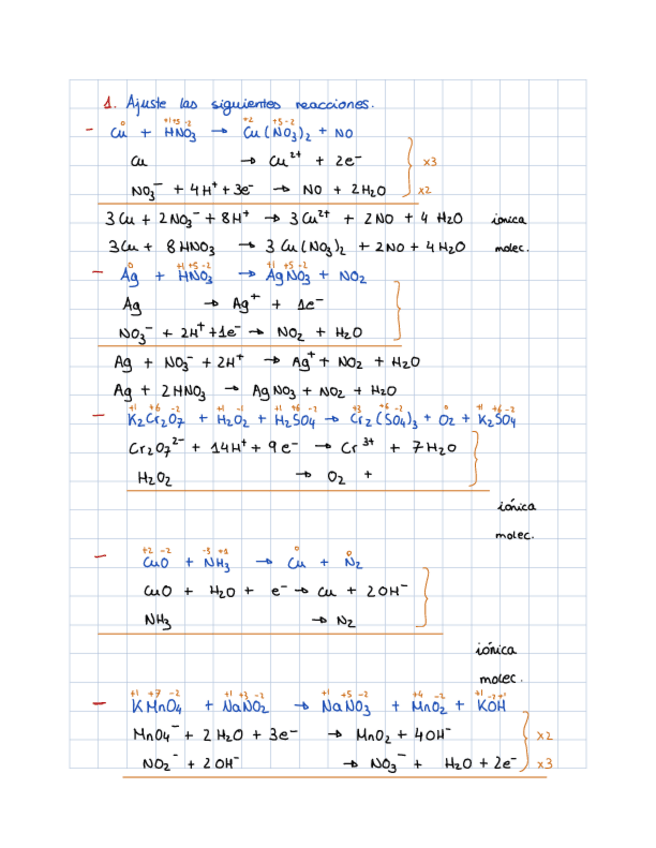 1. Ajuste las siguientes reacciones.
0 +1+5 -2 +2 +5 -2
- Cu + HNO3 → Cu(NO3)2 + NO
Cu → Cu²⁺ + 2e⁻ x3
NO3⁻ + 4H⁺ + 3e⁻ → NO + 2H2O x2
3Cu + 2NO3⁻ + 8H⁺ → 3Cu²⁺ + 2NO + 4H2O iónica
3Cu + 8HNO3 → 3Cu(NO3)2 + 2NO + 4H2O molec.
0 +1 +5 -2 +1 +5 -2
- Ag + HNO3 → AgNO3 + NO2
Ag → Ag⁺ + 1e⁻
NO3⁻ + 2H⁺ + 1e⁻ → NO2 + H2O
Ag + NO3⁻ + 2H⁺ → Ag⁺ + NO2 + H2O
Ag + 2HNO3 → AgNO3 + NO2 + H2O
+1 +6 -2 +1 -1 +1 +6 -2 +3 +6 -2 0 +1 +6 -2
- K2Cr2O7 + H2O2 + H2SO4 → Cr2(SO4)3 + O2 + K2SO4
Cr2O7²⁻ + 14H⁺ + 9e⁻ → Cr³⁺ + 7H2O
H2O2 → O2 +
iónica
molec.
+2 -2 -3 +1 0 0
- CuO + NH3 → Cu + N2
CuO + H2O + e⁻ → Cu + 2OH⁻
NH3 → N2
iónica
molec.
+1 +7 -2 +1 +3 -2 +1 +5 -2 +4 -2 +1 -2 +1
- KMnO4 + NaNO2 → NaNO3 + MnO2 + KOH
MnO4⁻ + 2H2O + 3e⁻ → MnO2 + 4OH⁻ x2
NO2⁻ + 2OH⁻ → NO3⁻ + H2O + 2e⁻ x3